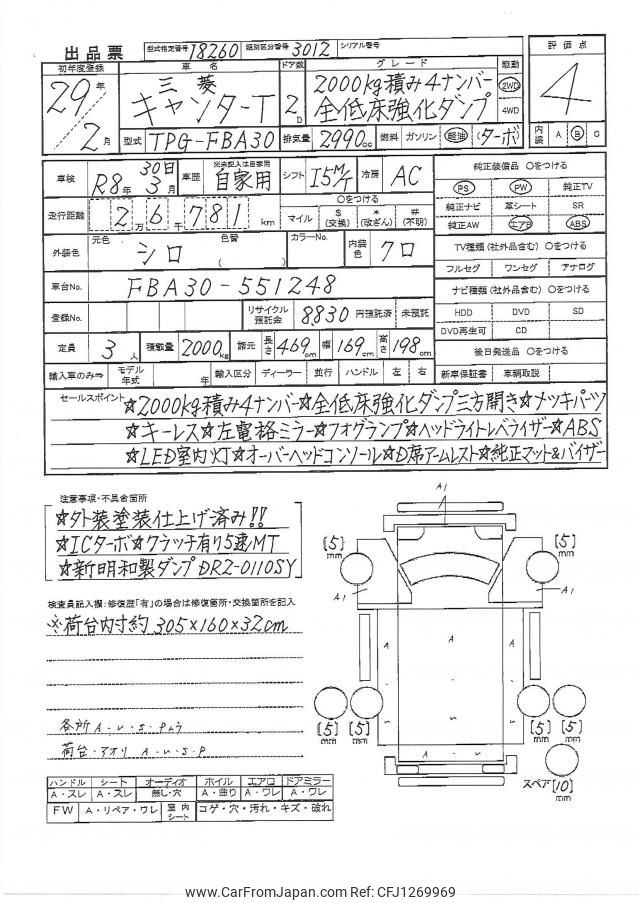 出品票 型式指定番号 18260 類別区分番号 3012 シリアル番号
評価点
4
初年度登録 車名 ドア数 グレード 駆動
29年/2月
三菱
キャンターT
2D
2000kg積み4ナンバー
全低床強化ダンプ
2WD
4WD
型式 TPG-FBA30 排気量 2990cc 燃料 ガソリン 軽油 (ターボ)
内装 A B C
車検 R8年 3月 30日 車歴 ※未記入は自家用 自家用 シフト I5M/T 冷房 AC
走行距離 2万6千781km ○をつける マイル $(交換) *(改ざん) #(不明)
外装色 元色 シロ 色替 ( ) カラーNo. 内装色 クロ
車台No. FBA30-551248
登録No. リサイクル預託金 8830円預託済 未預託
定員 3人 積載量 2000kg 諸元 長さ 469cm 幅 169cm 高さ 198cm
輸入車のみ⇒ モデル年式 年 輸入区分 ディーラー 並行 ハンドル 左 右
純正装備品 ○をつける
PS PW 純正TV
純正ナビ 革シート SR
純正AW エアB ABS
TV種類(社外品含む) ○をつける
フルセグ ワンセグ アナログ
ナビ種類(社外品含む) ○をつける
HDD DVD SD
DVD再生可 CD
後日発送品 ○をつける
新車保証書 車輌取説
セールスポイント ☆2000kg積み4ナンバー☆全低床強化ダンプ三方開き☆メッキパーツ
☆キーレス☆左電格ミラー☆フォグランプ☆ヘッドライトレベライザー☆ABS
☆LED室内灯☆オーバーヘッドコンソール☆D席アームレスト☆純正マット&バイザー
注意事項・不具合箇所
☆外装塗装仕上げ済み!!
☆ICターボ☆クラッチ有り5速MT
☆新明和製ダンプDRZ-0110SY
検査員記入欄:修復歴「有」の場合は修復箇所・交換箇所を記入
※荷台内寸約305×160×32cm
各所A-U-S-Pムラ
荷台・アオリ A-U-S-P
A1
[5]mm [5]mm
A1 A1
A A
A
[5]mm [5]mm [5]mm [5]mm
スペア[10]mm
ハンドル シート オーディオ ホイル エアロ ドアミラー
A・スレ A・スレ 無し・穴 A・曲り A・ワレ A・ワレ
FW A・リペア・ワレ 室内シート コゲ・穴・汚れ・キズ・破れ
www.CarFromJapan.com Ref: CFJ1269969